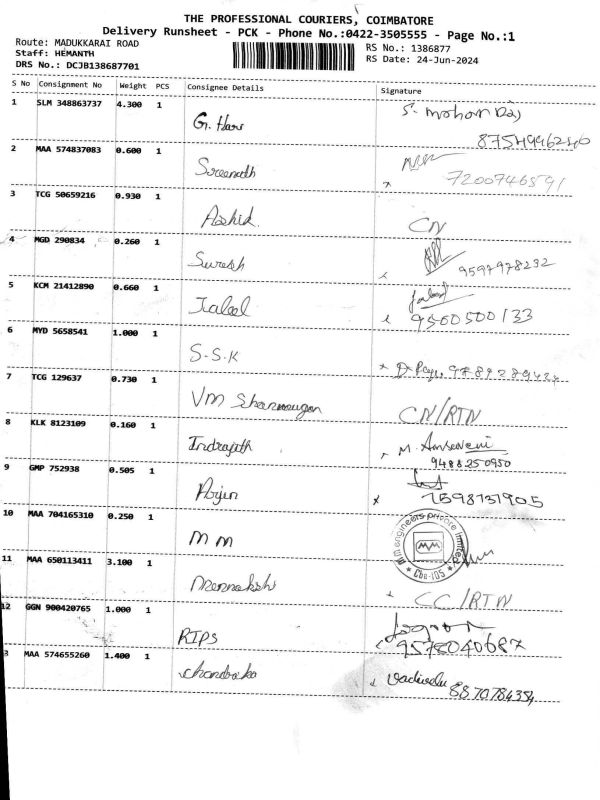 THE PROFESSIONAL COURIERS, COIMBATORE
Delivery Runsheet - PCK - Phone No.:0422-3505555 - Page No.:1
Route: MADUKKARAI ROAD
Staff: HEMANTH
DRS No.: DCJB138687701
RS No.: 1386877
RS Date: 24-Jun-2024
S No Consignment No Weight PCS Consignee Details Signature
1 SLM 348863737 4.300 1 G. Hari S. Mohan Das
2 MAA 574837083 0.600 1 Sreenath 7200746591
3 TCG 50659216 0.930 1 Ashid. CN
4 MGD 290834 0.260 1 Suresh 9597978232
5 KCM 21412890 0.660 1 Jaleel Jaleel
9500500133
6 MYD 5658541 1.000 1 S.S.K
7 TCG 129637 0.730 1 VM Shanmugan CN/RTN
8 KLK 8123109 0.160 1 Indrajith M.
9488250950
9 GMP 752938 0.505 1 Arjun 7598131905
10 MAA 704165310 0.250 1 MM
mm engineers private limited
MM
Cbe-105
11 MAA 650113411 3.100 1 Meenakshi CC/RTN
12 GGN 900420765 1.000 1 RIPS
9578040687
3 MAA 574655260 1.400 1 Chandraka Vadivelu 8870784384